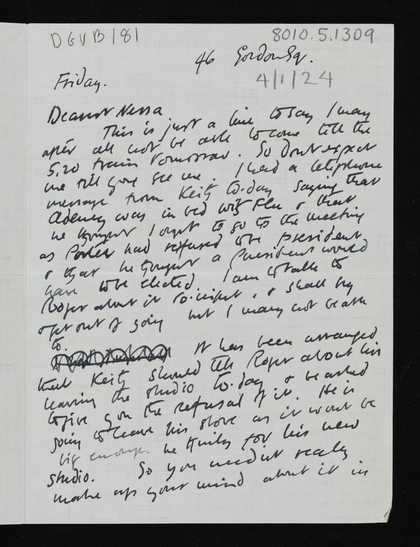 DGVB/81
8010.5.1309
46 Gordon Sq.
4/1/24
Friday.
Dearest Nessa
This is just a line to say I may
after all not be able to come till the
5.20 train tomorrow. So don't expect
me till you see me. I had a telephone
message from Keith to-day saying that
Adeney was in bed with flu & that
he thought I ought to go to the meeting
as Porter had refused to be president
& that he thought a President would
have to be elected. I am to talk to
Roger about it to-night, & shall try
& get out of going but I may not be able
to.
It has been arranged
that Keith should tell Roger about his
leaving the studio to-day & be asked
to give you the refusal of it. He is
going to leave his stove as it won't be
big enough he thinks for his new
studio. So you needn't really
make up your mind about it in